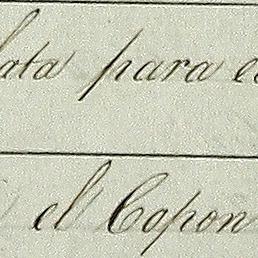 lata para el
el Capon